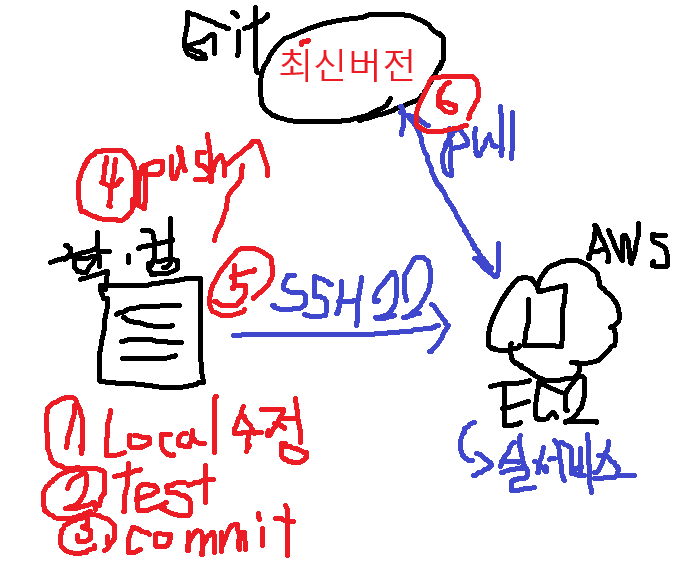 Git
최신버전
⑥
pull
④ push
현.컴
⑤ SSH 22
AWS
EC2
실서비스
① Local 수정
② Test
③ commit